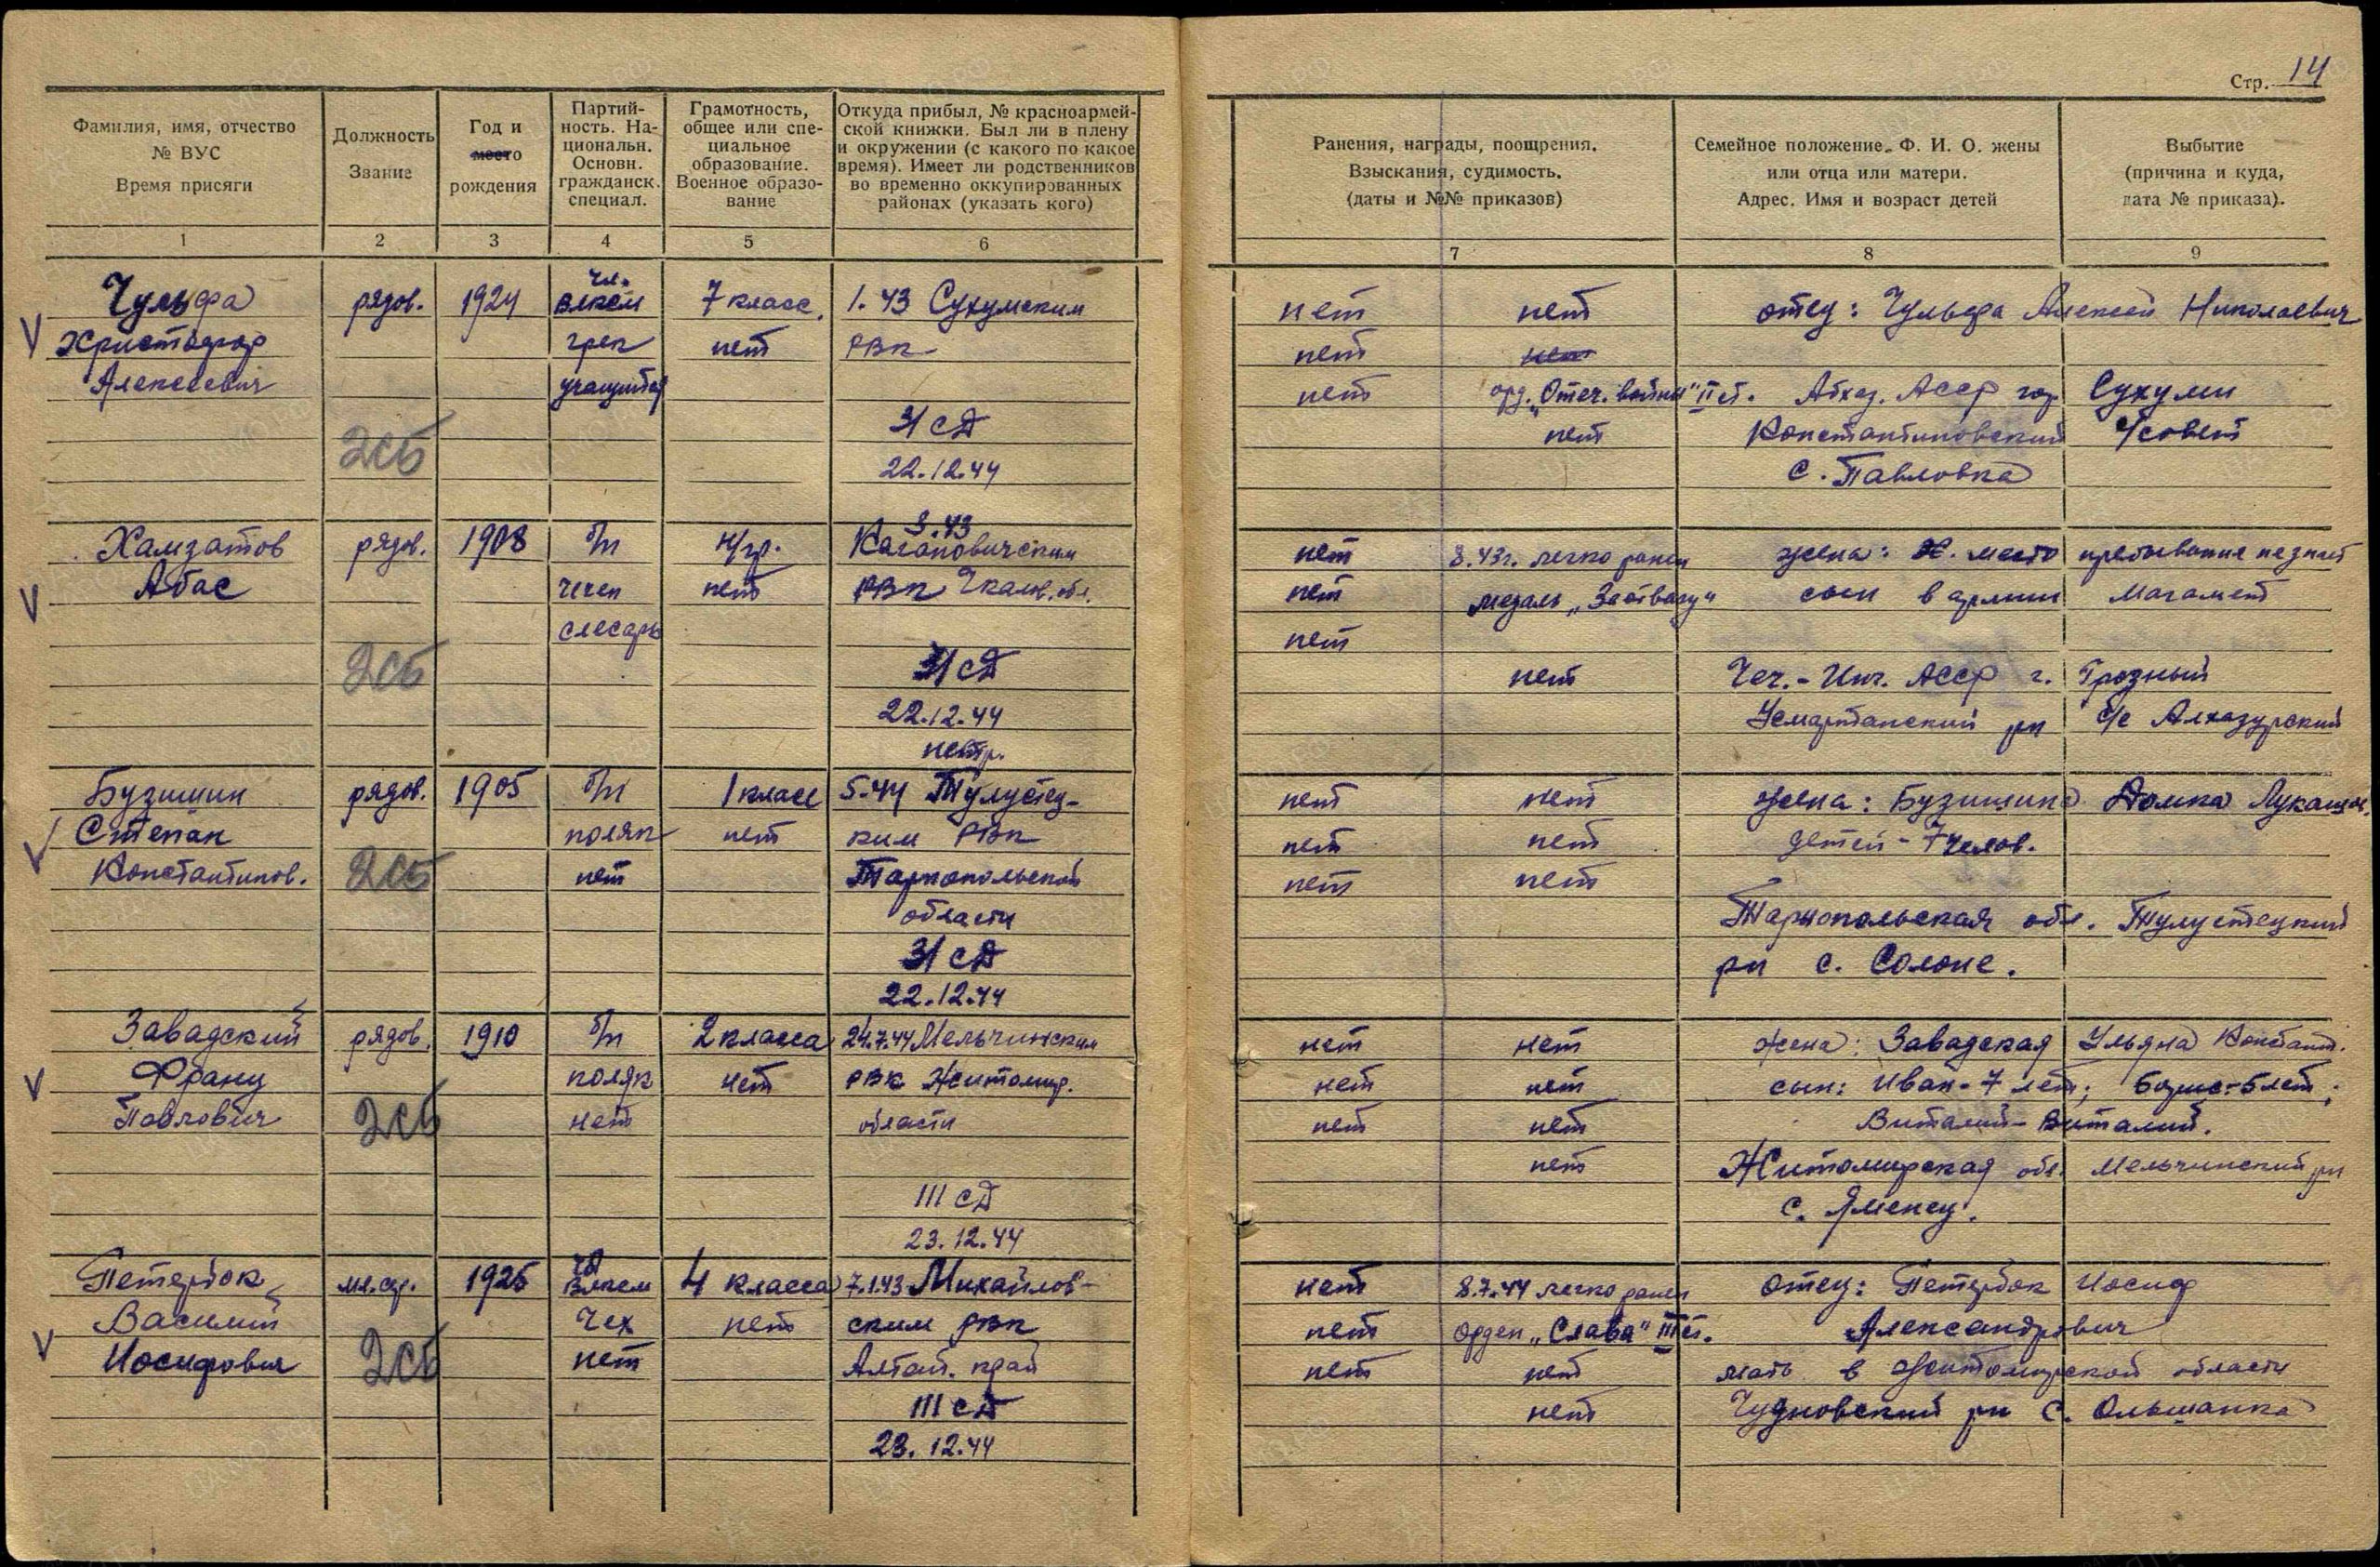 Стр. 14
Фамилия, имя, отчество
№ ВУС
Время присяги
Должность
Звание
Год и
место
рождения
Партий-
ность. На-
циональн.
Основн.
гражданск.
специал.
Грамотность,
общее или спе-
циальное
образование.
Военное образо-
вание
Откуда прибыл, № красноармей-
ской книжки. Был ли в плену
и окружении (с какого по какое
время). Имеет ли родственников
во временно оккупированных
районах (указать кого)
Ранения, награды, поощрения.
Взыскания, судимость.
(даты и №№ приказов)
Семейное положение. Ф. И. О. жены
или отца или матери.
Адрес. Имя и возраст детей
Выбытие
(причина и куда,
дата № приказа).
1 2 3 4 5 6 7 8 9
чл.
Чульфа рядов. 1924 влксм 7 класс. 1.43 Сухумским нет нет отец: Чульфа Алексей Николаевич
Христофор грек нет РВК нет нет
Алексеевич учащийся нет орд. „Отеч. войны" II ст. Абхаз. АССР гор. Сухуми
31 сд нет Константиновский с/совет
2сб 22.12.44 с. Павловка
3.43
Хамзатов рядов. 1908 б/п н/гр. Кагановичским нет 8.43г. легко ранен жена: место пребывание не знает
Абас чечен нет РВК Чкалов. обл. нет медаль „За отвагу" сын в армии Магамет
слесарь нет
2сб 31 сд нет Чеч.-Инг. АССР г. Грозный
22.12.44 рн с/с Алхазурский
Бузишин рядов. 1905 б/п 1 класс 5.44 Тулустец- нет нет жена: Бузишина Домка
Степан поляк нет ким РВК нет нет детей - 7 челов.
Константинов. 2сб нет Тарнопольской нет нет
области Тарнопольская обл. Тулустецкий
31 сд рн с. Солоне.
22.12.44
Завадский рядов. 1910 б/п 2 класса 24.7.44 Мельчинским нет нет жена: Завадская Ульяна Констант.
Франц поляк нет РВК Житомир. нет нет сын: Иван - 7 лет; Борис - 5 лет;
Павлович 2сб нет области нет нет Виталий - Виталий.
нет Житомирская обл. Мельчинский рн
111 сд с. Яменец.
23.12.44
Петербок мл. сер. 1925 влксм 4 класса 7.1.43 Михайлов- нет 8.7.44 легко ранен отец: Петербок Иосиф
Василий чех нет ским РВК нет орден „Слава" III ст. Александрович
Иосифович 2сб нет Алтай. край нет нет мать в житомирской области
111 сд нет Чудновский рн с. Ольшанка
23.12.44